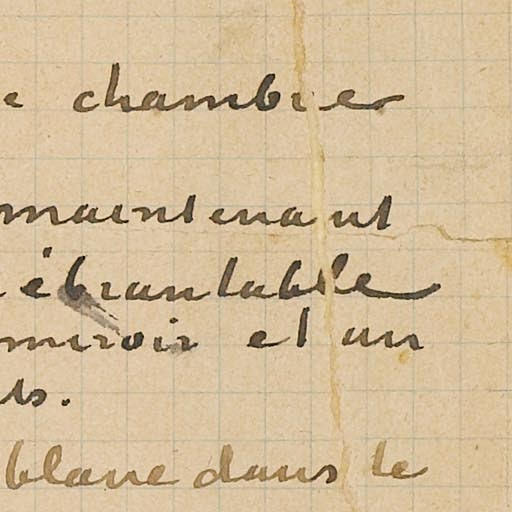 chambre
maintenant
ébranlable
miroir et un
ts.
blanc dans le